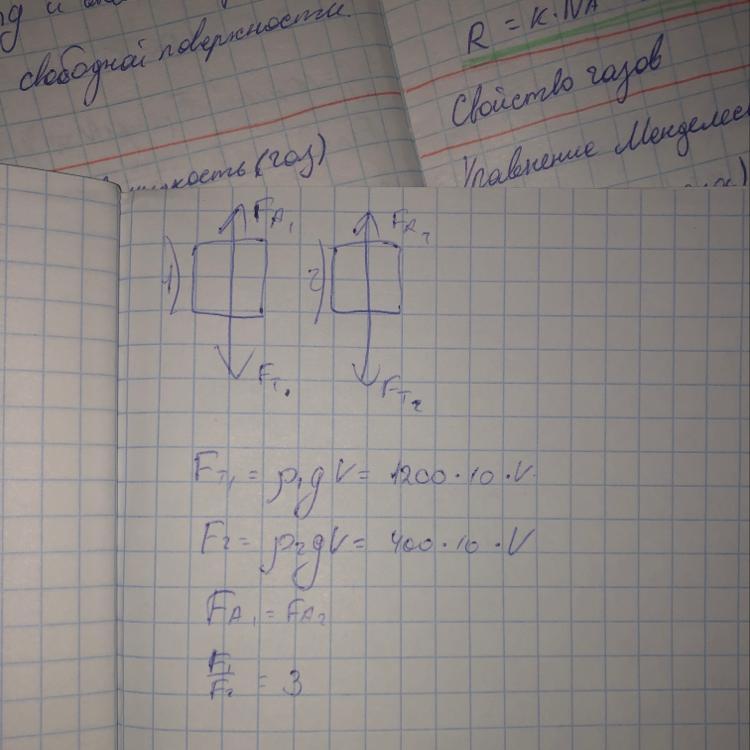 свободной поверхности.
R = k·NA
Свойство газов
Уравнение Менделеев
(газ)
1) FA1 2) FA2
FT1 FT2
FT1 = ρ1gV = 1200·10·V
F2 = ρ2gV = 400·10·V
FA1 = FA2
F1/F2 = 3